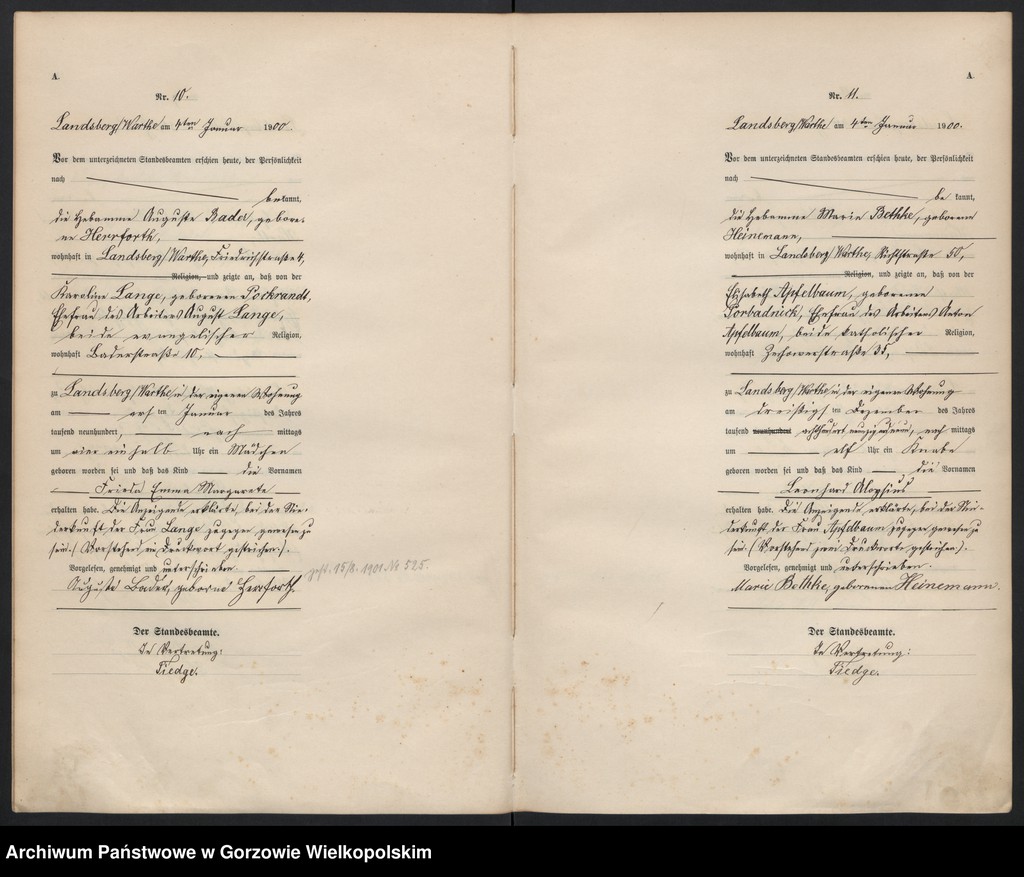 A.
Nr. 10.
Landsberg/Warthe am 4ten Januar 1900.
Vor dem unterzeichneten Standesbeamten erschien heute, der Persönlichkeit
nach
bekannt,
die Hebamme Auguste Bader, gebore-
ne Herrforth,
wohnhaft in Landsberg/Warthe, Friedrichstraße 4,
Religion, und zeigte an, daß von der
Karoline Lange, geborenen Pockrandt,
Ehefrau des Arbeiters August Lange,
beide evangelischer Religion,
wohnhaft Baderstraße 10,
zu Landsberg/Warthe in der eigenen Wohnung
am ten Januar des Jahres
tausend neunhundert, nach mittags
um vier einhalb Uhr ein Mädchen
geboren worden sei und daß das Kind die Vornamen
Frieda Emma Margarete
erhalten habe. Die Anzeigende erklärte, bei der Nie-
derkunft der Frau Lange zugegen gewesen zu
sein. (Vorstehend ein Druckwort gestrichen).
Vorgelesen, genehmigt und unterschrieben
Auguste Bader, geborne Herrforth.
gest. 15/8. 1901 No 525.
Der Standesbeamte.
In Vertretung:
Tiedge.
A.
Nr. 11.
Landsberg/Warthe am 4ten Januar 1900.
Vor dem unterzeichneten Standesbeamten erschien heute, der Persönlichkeit
nach
be kannt,
die Hebamme Marie Bethke, geborene
Heinemann,
wohnhaft in Landsberg/Warthe, Richtstraße 50,
Religion, und zeigte an, daß von der
Elisabeth Apfelbaum, geborenen
Ehefrau des Arbeiters Anton
Apfelbaum, beide katholischer Religion,
wohnhaft Zechowerstraße 35,
zu Landsberg/Warthe in der eigenen Wohnung
am dreißigsten Dezember des Jahres
tausend neunhundert achthundert neunzigundneun, nach mittags
um elf Uhr ein Knabe
geboren worden sei und daß das Kind die Vornamen
Leonhard Aloysius
erhalten habe. Die Anzeigende erklärte, bei der Nie-
derkunft der Frau Apfelbaum zugegen gewesen zu
sein. (Vorstehend zwei Druckworte gestrichen).
Vorgelesen, genehmigt und unterschrieben.
Marie Bethke, geborenen Heinemann.
Der Standesbeamte.
In Vertretung:
Tiedge.
Archiwum Państwowe w Gorzowie Wielkopolskim